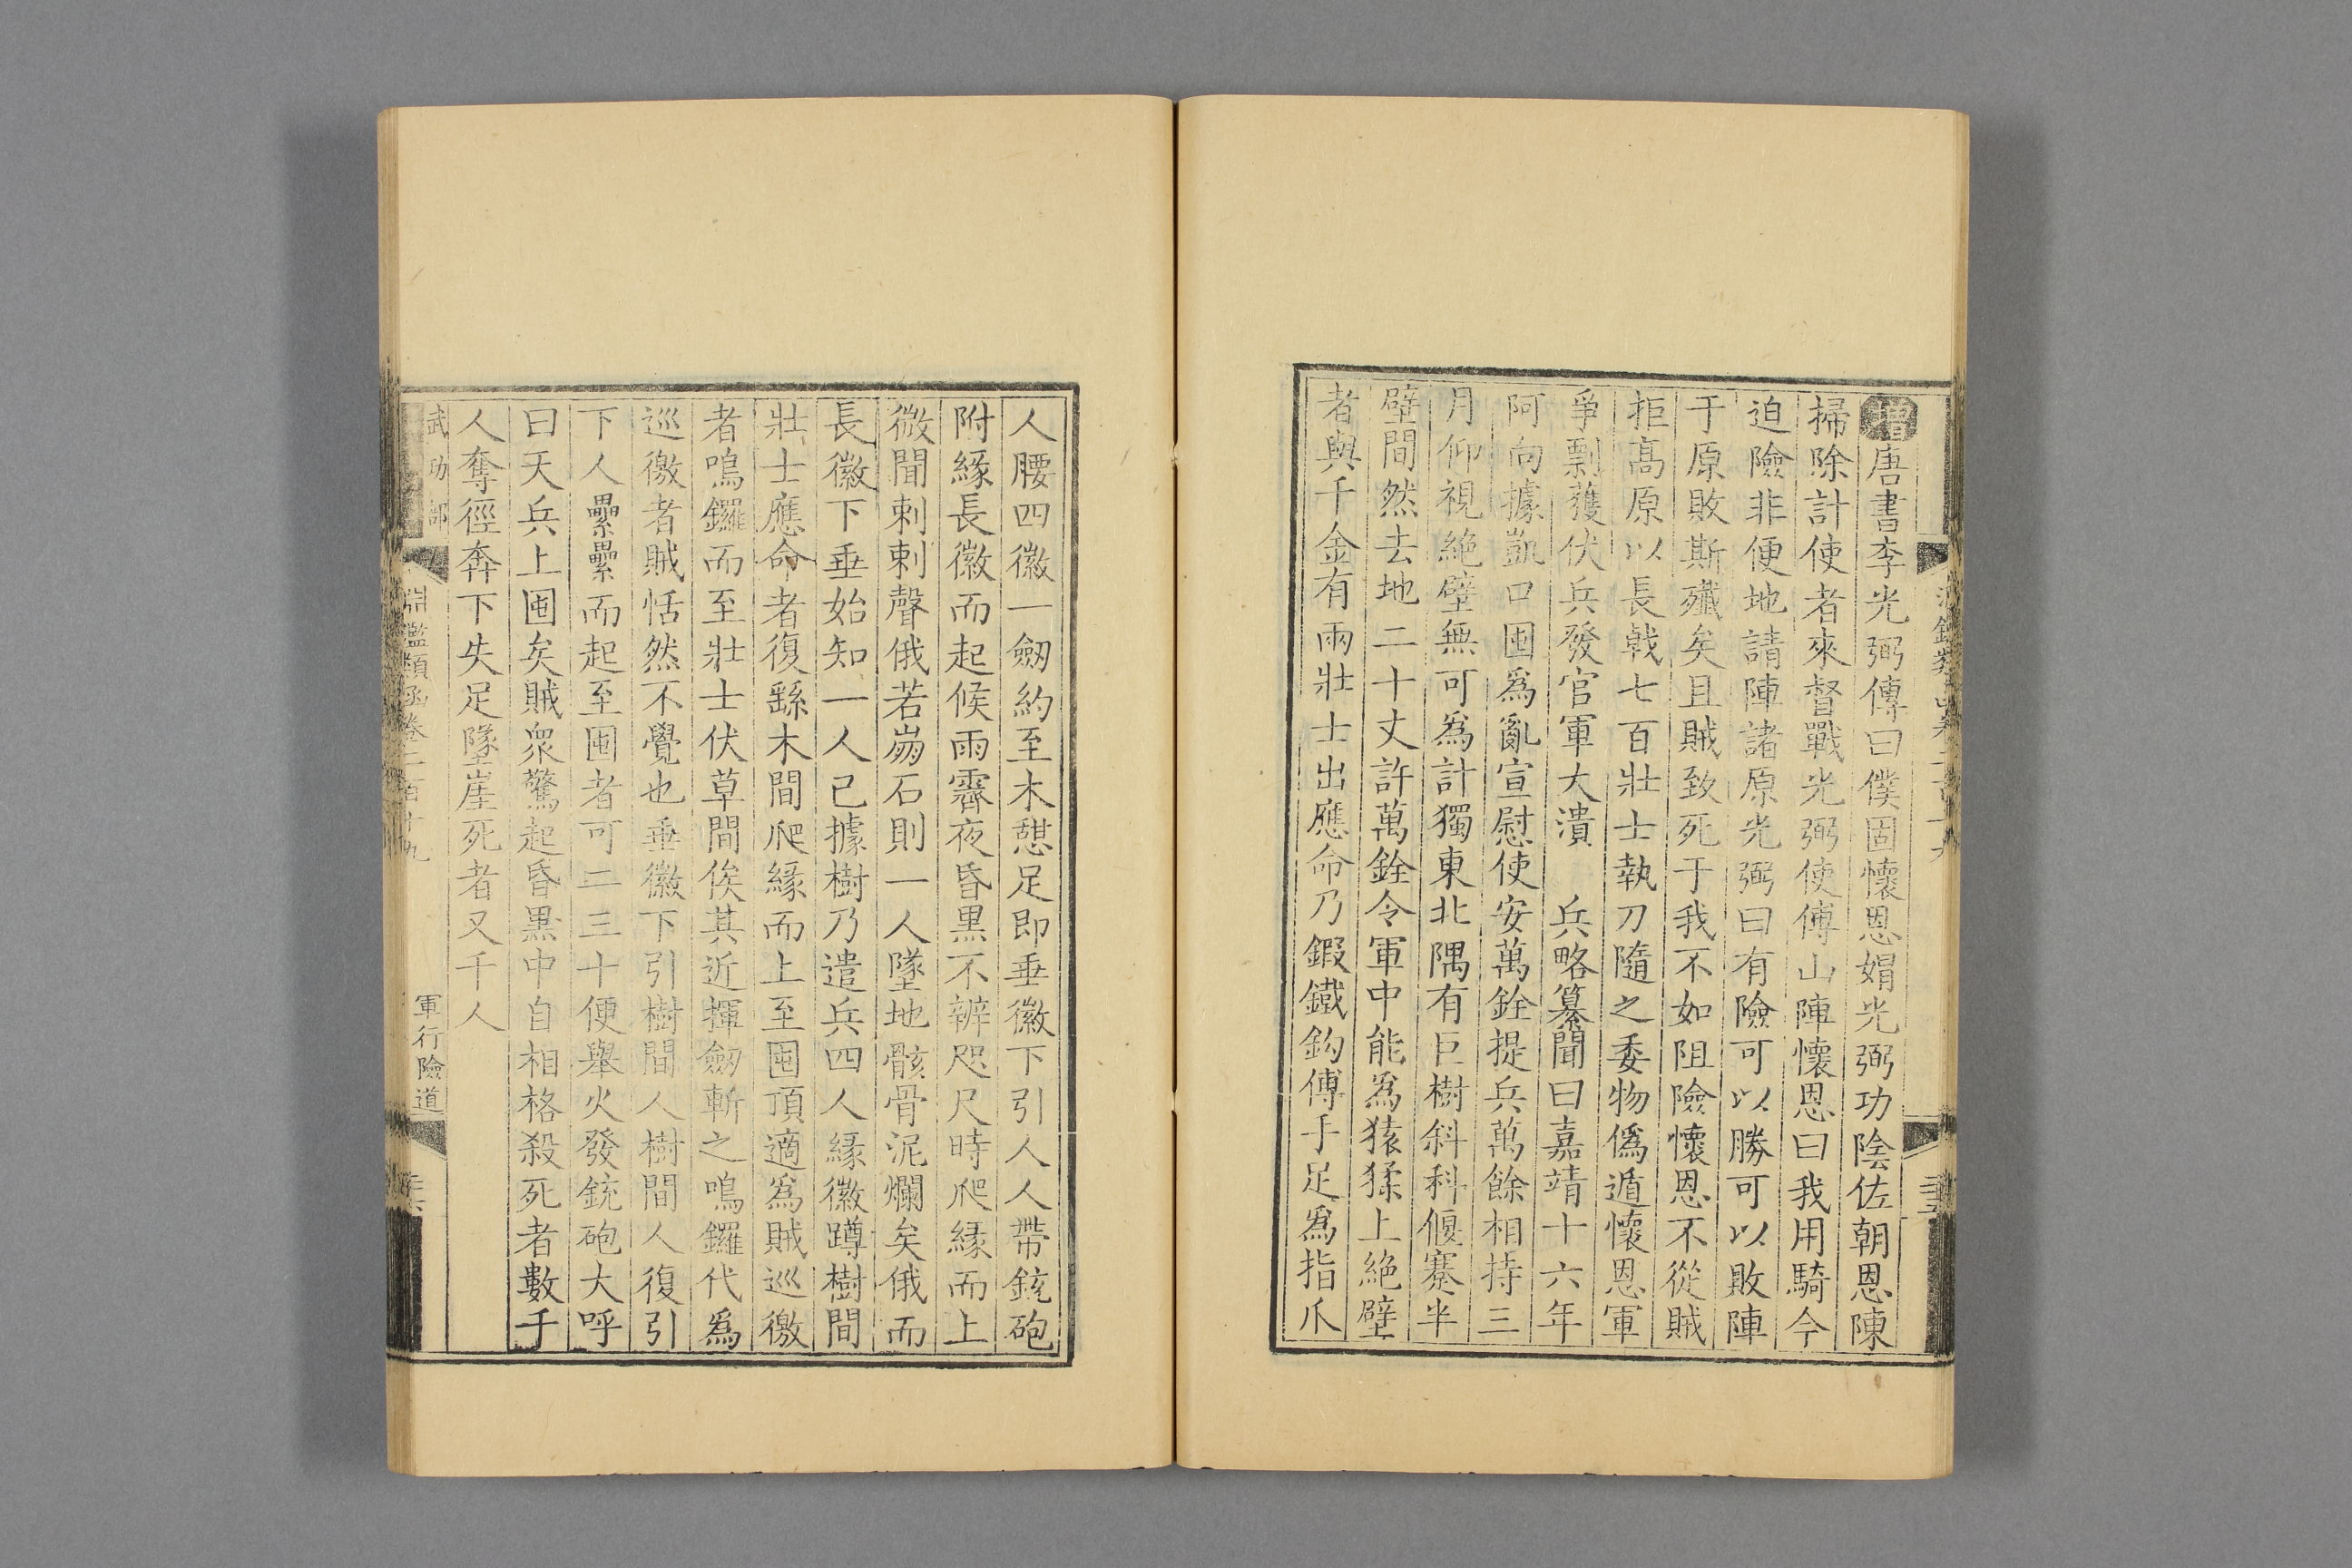 增唐書李光弼傳曰僕固懷恩媢光弼功陰佐朝恩陳
掃除計使者來督戰光弼使傅山陣懷恩曰我用騎今
迫險非便地請陣諸原光弼曰有險可以勝可以敗陣
于原敗斯殲矣且賊致死于我不如阻險懷恩不從賊
拒髙原以長戟七百壯士執刀隨之委物僞遁懷恩軍
爭剽獲伏兵發官軍大潰　兵略纂聞曰嘉靖十六年
阿向據凱口囤爲亂宣慰使安萬銓提兵萬餘相持三
月仰視絶壁無可爲計獨東北隅有巨樹斜科偃蹇半
壁間然去地二十丈許萬銓令軍中能爲猿猱上絶壁
者與千金有兩壯士出應命乃鍜鐵鈎傅手足爲指爪
人腰四徽一劒約至木憇足即垂徽下引人人帶銃砲
附緣長徽而起候雨霽夜昏黒不辨咫尺時爬緣而上
微聞剌剌聲俄若崩石則一人墜地骸骨泥爛矣俄而
長徽下垂始知一人已據樹乃遣兵四人緣徽蹲樹間
壯士應命者復繇木間爬緣而上至囤頂適爲賊巡徼
者鳴鑼而至壯士伏草間俟其近揮劒斬之鳴鑼代爲
巡徼者賊恬然不覺也垂徽下引樹間人樹間人復引
下人纍纍而起至囤者可二三十便舉火發銃砲大呼
曰天兵上囤矣賊衆驚起昏黒中自相格殺死者數千
人奪徑奔下失足墜崖死者又千人
武功部
淵鑑類函卷二百十九
軍行險道